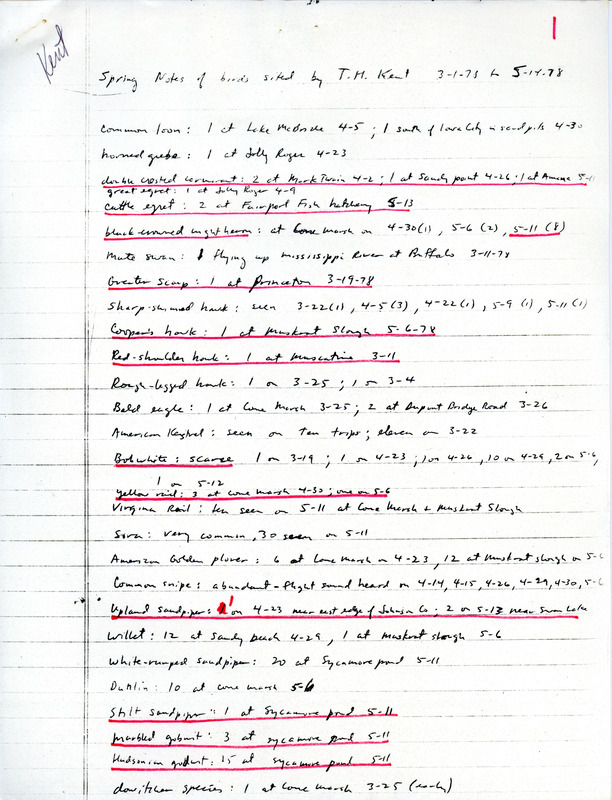 1
Kent
Spring Notes of birds sited by T.H. Kent 3-1-73 to 5-14-78
Common loon: 1 at Lake McBride 4-5; 1 south of Iowa City in sandpits 4-30
horned grebe: 1 at Jolly Roger 4-23
double crested cormorant: 2 at Mark Twain 4-2; 1 at Sandy point 4-26; 1 at Amana 5-11
great egret: 1 at Jolly Roger 4-9
cattle egret: 2 at Fairport Fish hatchery 5-13
black-crowned night heron: at Cone marsh on 4-30(1), 5-6 (2), 5-11 (8)
Mute swan: 1 flying up Mississippi River at Buffalo 3-11-78
Greater Scaup: 1 at Princeton 3-19-78
Sharp-shinned hawk: seen 3-22(1), 4-5(3), 4-22(1), 5-9 (1), 5-11 (1)
Cooper's hawk: 1 at Muskrat Slough 5-6-78
Red-shoulder hawk: 1 at Muscatine 3-11
Rough-legged hawk: 1 on 3-25; 1 on 3-4
Bald eagle: 1 at Cone Marsh 3-25; 2 at Dupont Bridge Road 3-26
American Kestrel: seen on ten trips; eleven on 3-22
Bobwhite: scarce 1 on 3-19; 1 on 4-23; 1 on 4-26, 10 on 4-29, 2 on 5-6,
1 on 5-12
yellow rail: 3 at Cone marsh 4-30; one on 5-6
Virginia Rail: ten seen on 5-11 at Cone Marsh & Muskrat Slough
Sora: very common, 30 seen on 5-11
American Golden plover: 6 at Cone marsh on 4-23, 12 at Muskrat slough on 5-6
Common snipe: abundant-flight sound heard on 4-14, 4-15, 4-26, 4-29, 4-30, 5-6
Upland sandpiper: 1 on 4-23 near east edge of Johnson Co; 2 on 5-13 near Swan Lake
Willet: 12 at Sandy beach 4-29, 1 at Muskrat slough 5-6
White-rumped sandpiper: 20 at Sycamore pond 5-11
Dunlin: 10 at Cone marsh 5-6
Stilt sandpiper: 1 at Sycamore pond 5-11
marbled godwit: 3 at sycamore pond 5-11
Hudsonian godwit: 15 at sycamore pond 5-11
dowitcher species: 1 at Cone marsh 3-25 (early)